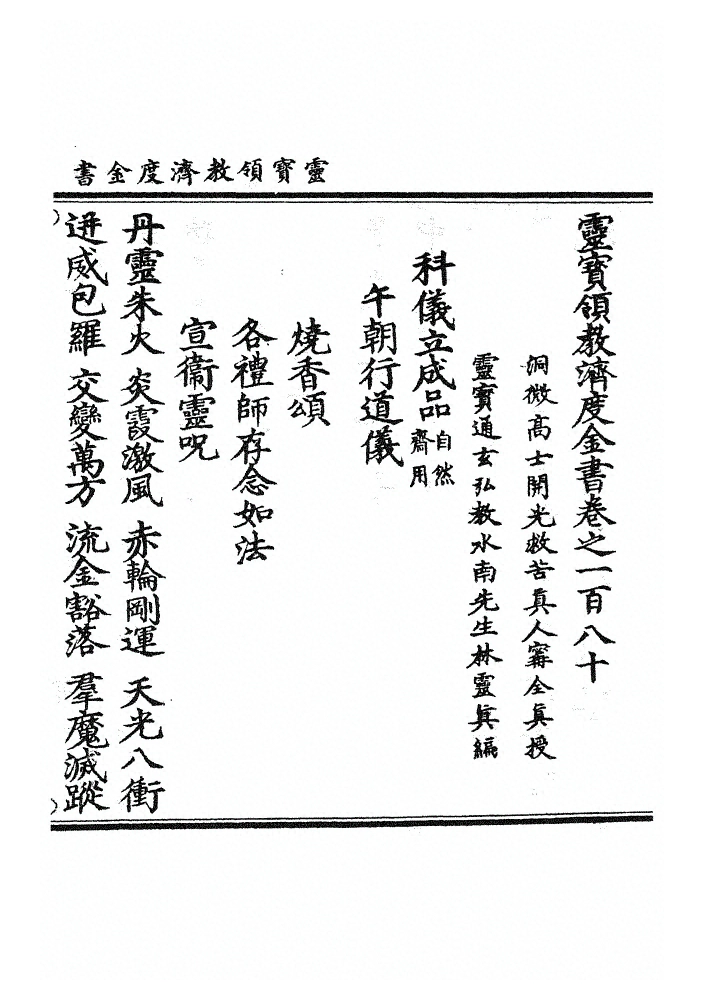 靈寶領教濟度金書
靈寶領教濟度金書卷之一百八十
洞微高士開光救苦真人甯全真授
靈寶通玄弘教水南先生林靈真編
科儀立成品 自然齋用
午朝行道儀
燒香頌
各禮師存念如法
宣衛靈呪
丹靈朱火 炎霞激風 赤輪剛運 天光八衝
迸威包羅 交變萬方 流金豁落 羣魔滅蹤